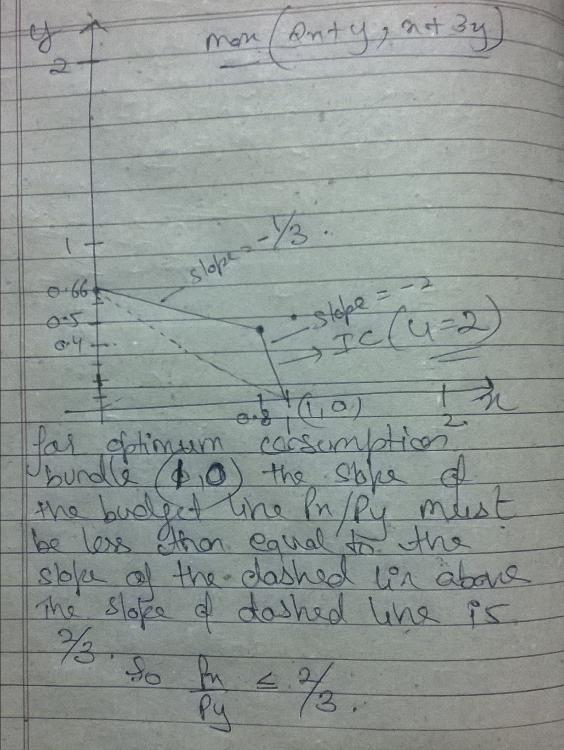 y
max (2x+y, x+3y)
2
1
slope = -1/3.
0.66
slope = -2
0.5
IC (u=2)
0.4
0.8
1
(1,0)
2
x
for optimum consumption
bundle (1,0) the slope of
the budget line Px/Py must
be less than equal to the
slope of the dashed lin above
The slope of dashed line is
2/3.
So Px/Py ≤ 2/3.